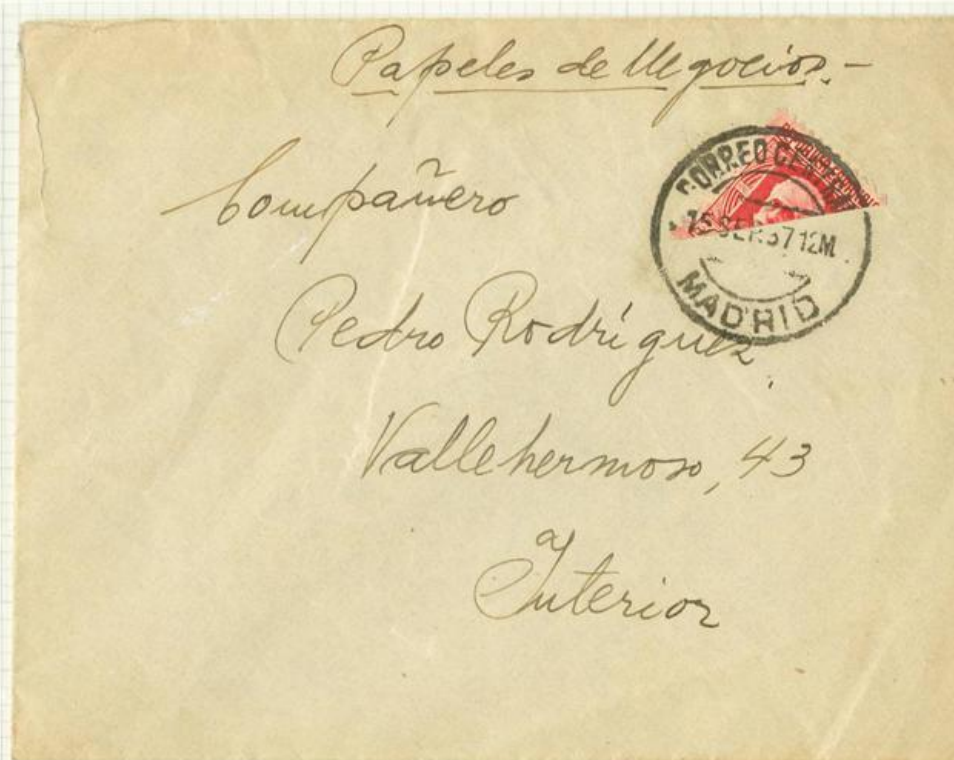 Papeles de Negocios.-
CORREO CENTRAL
15 SEP.37 12M
MADRID
Compañero
Pedro Rodríguez
Vallehermoso, 43
Interior